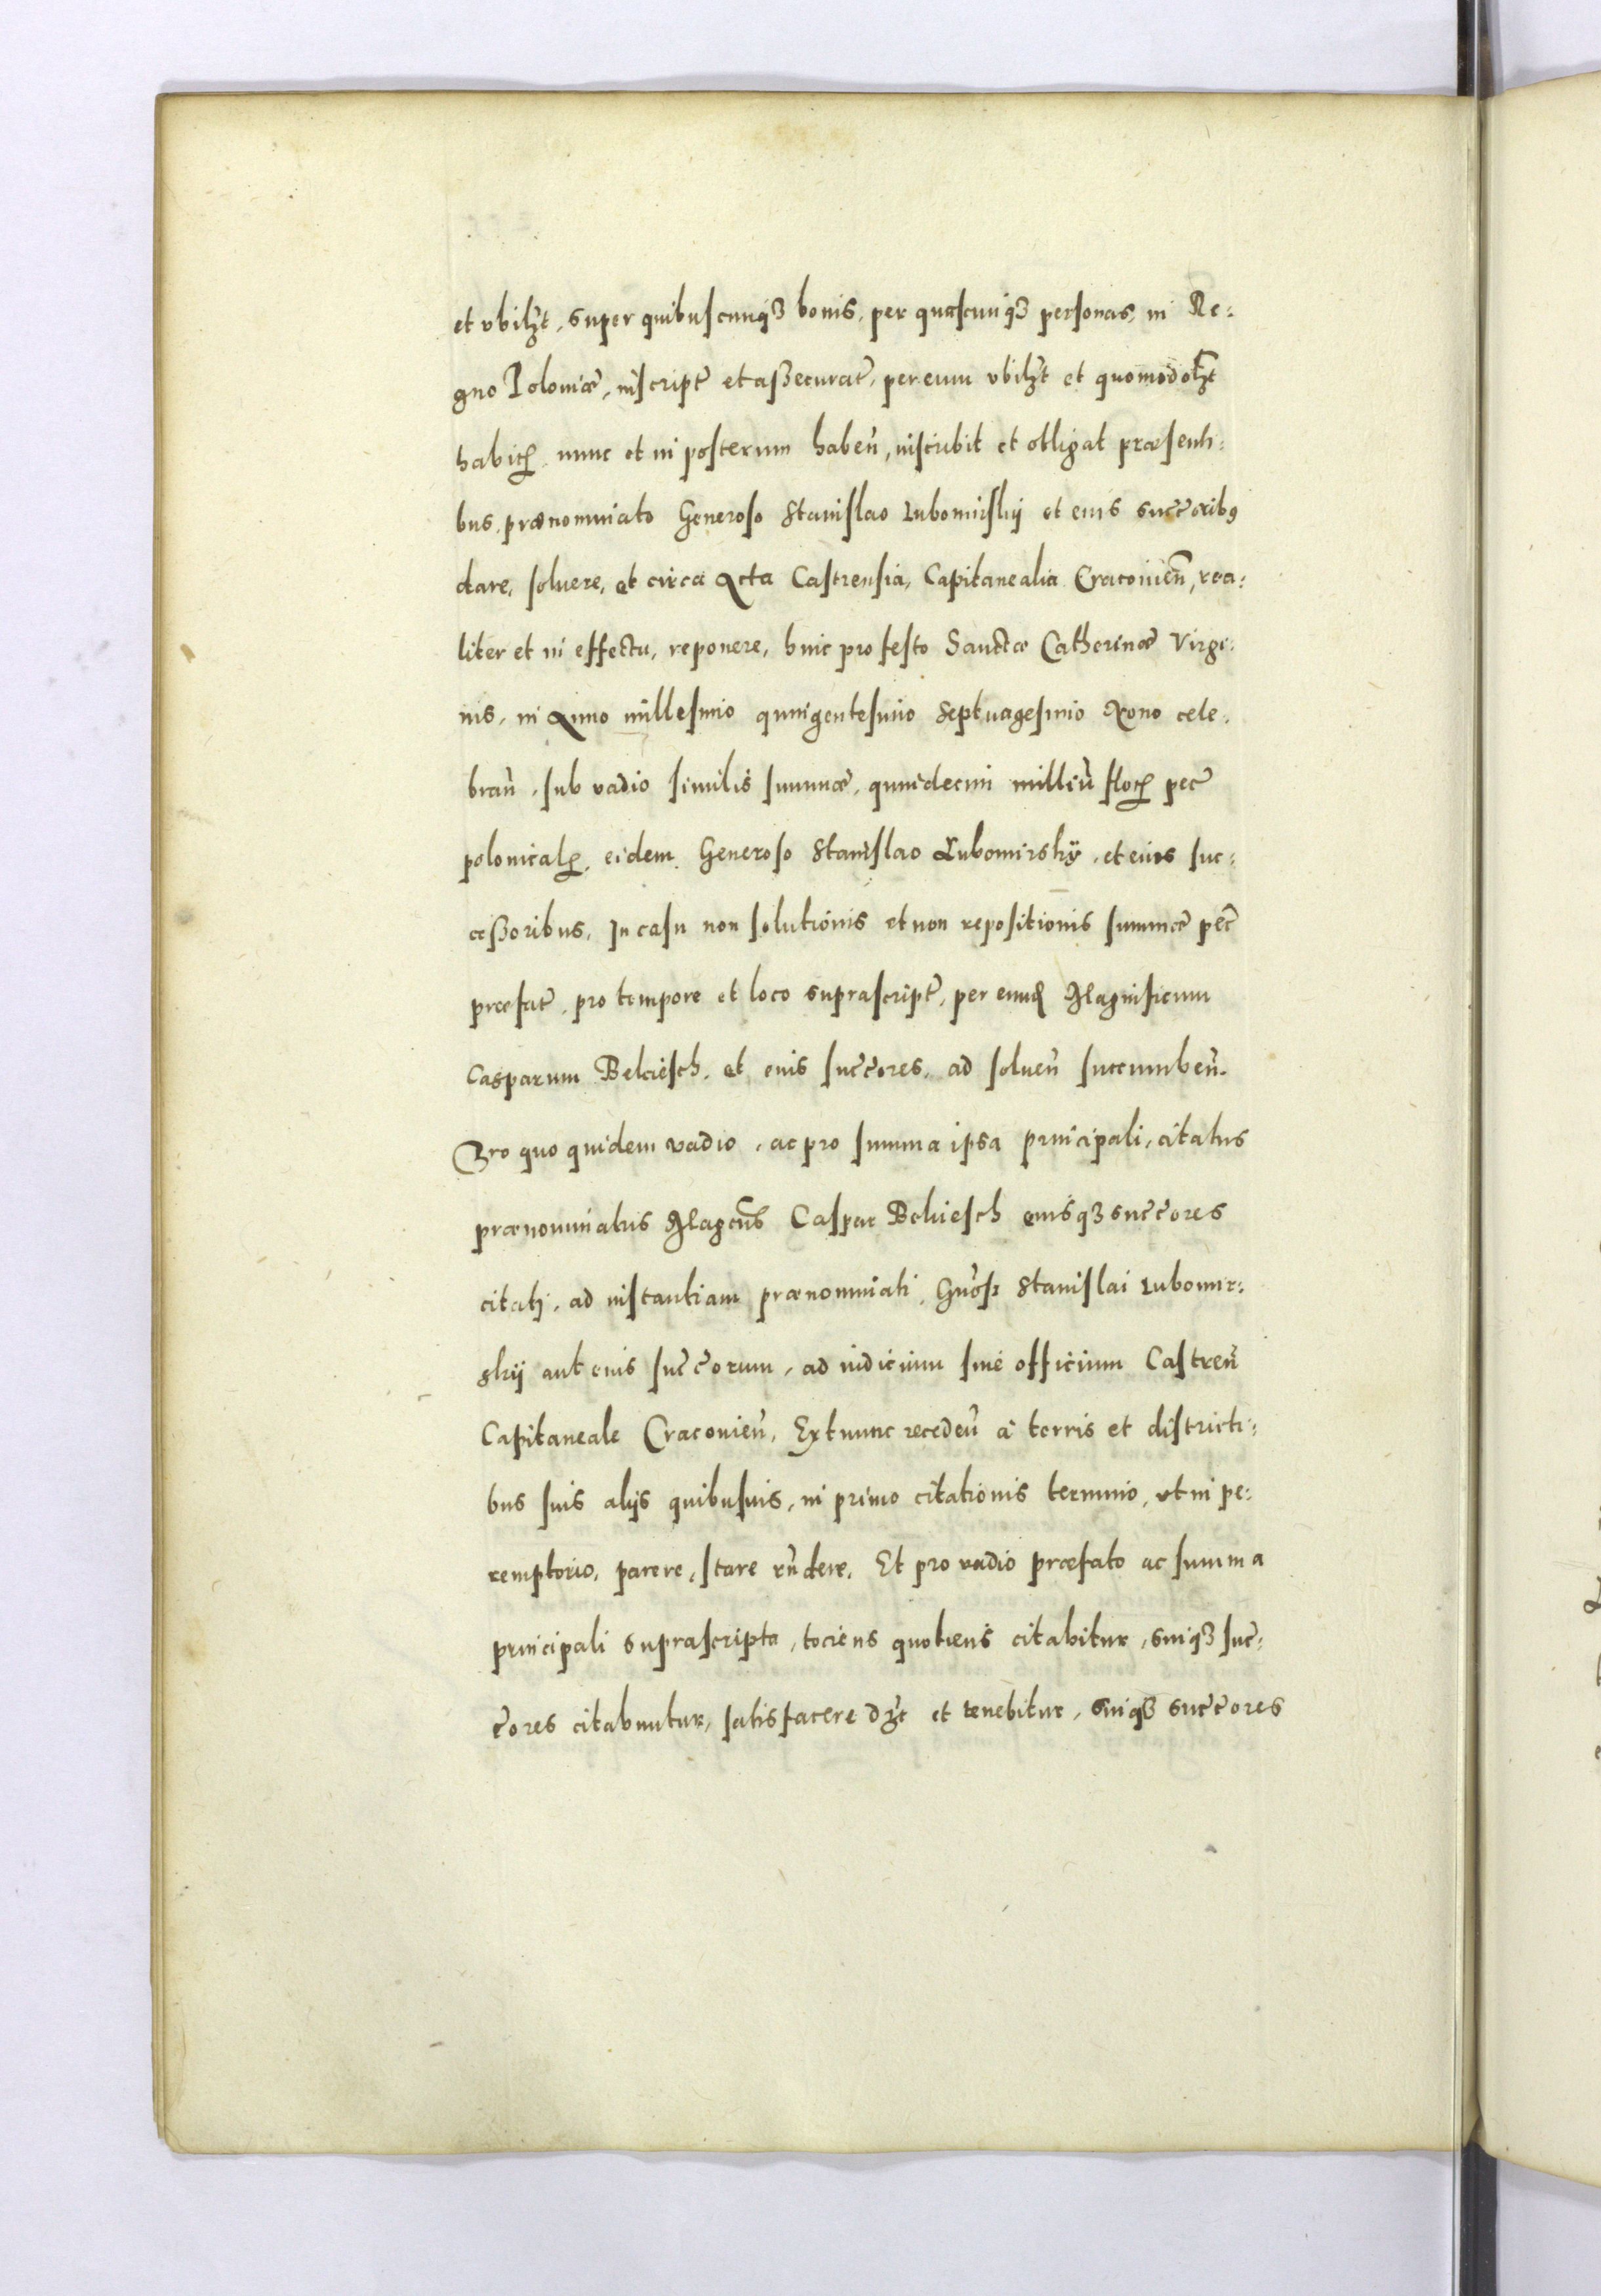 et vbilꝫt, super quibuscunqꝫ bonis, per quascunqꝫ personas, in Re-
gno Poloniæ, inscript̃ et assecurat̃, per eum vbilꝫt et quomodolꝫt
habitꝝ nunc et in posterum habeñ, inscribit et obligat præsenti-
bus, prænominato Generoso Stanislao Lubomirskij et eius succ̃oribꝰ
dare, soluere, et circa Acta Castrensia, Capitanealia Cracouien̄, rea-
liter et in effectu, reponere, hinc pro festo Sanctæ Catherinæ Virgi-
nis, in Anno millesimo quingentesimo Septuagesimo Nono cele-
brañ, sub vadio similis summæ, quindecim milliũ floꝝ pec̃
polonicalꝝ, eidem Generoso Stanislao Lubomirskÿ, et eius suc-
cessoribus, In casu non solutionis et non repositionis summæ pec̃
præfat̃, pro tempore et loco suprascript̃, per eund̃ Magnificum
Casparum Bekiesch, et eius succ̃ores, ad solueñ succumbeñ.
Pro quo quidem vadio, ac pro summa ipsa principali, citatus
prænominatus Magc̃us Caspar Bekiesch eiusqꝫ succ̃ores
citati, ad instantiam prænominati Gñosi Stanislai Lubomir-
skij aut eius succ̃orum, ad iudicium siue officium Castreñ
Capitaneale Cracouieñ, Ex tunc recedeñ à terris et districti-
bus suis alijs quibusuis, in primo citationis termino, vt in pe-
remptorio, parere, stare rñdere, Et pro vadio præfato ac summa
principali suprascripta, tociens quotiens citabitur, suiqꝫ suc-
c̃ores citabuntur, satisfacere dꝫt et tenebitur, suiqꝫ succ̃ores